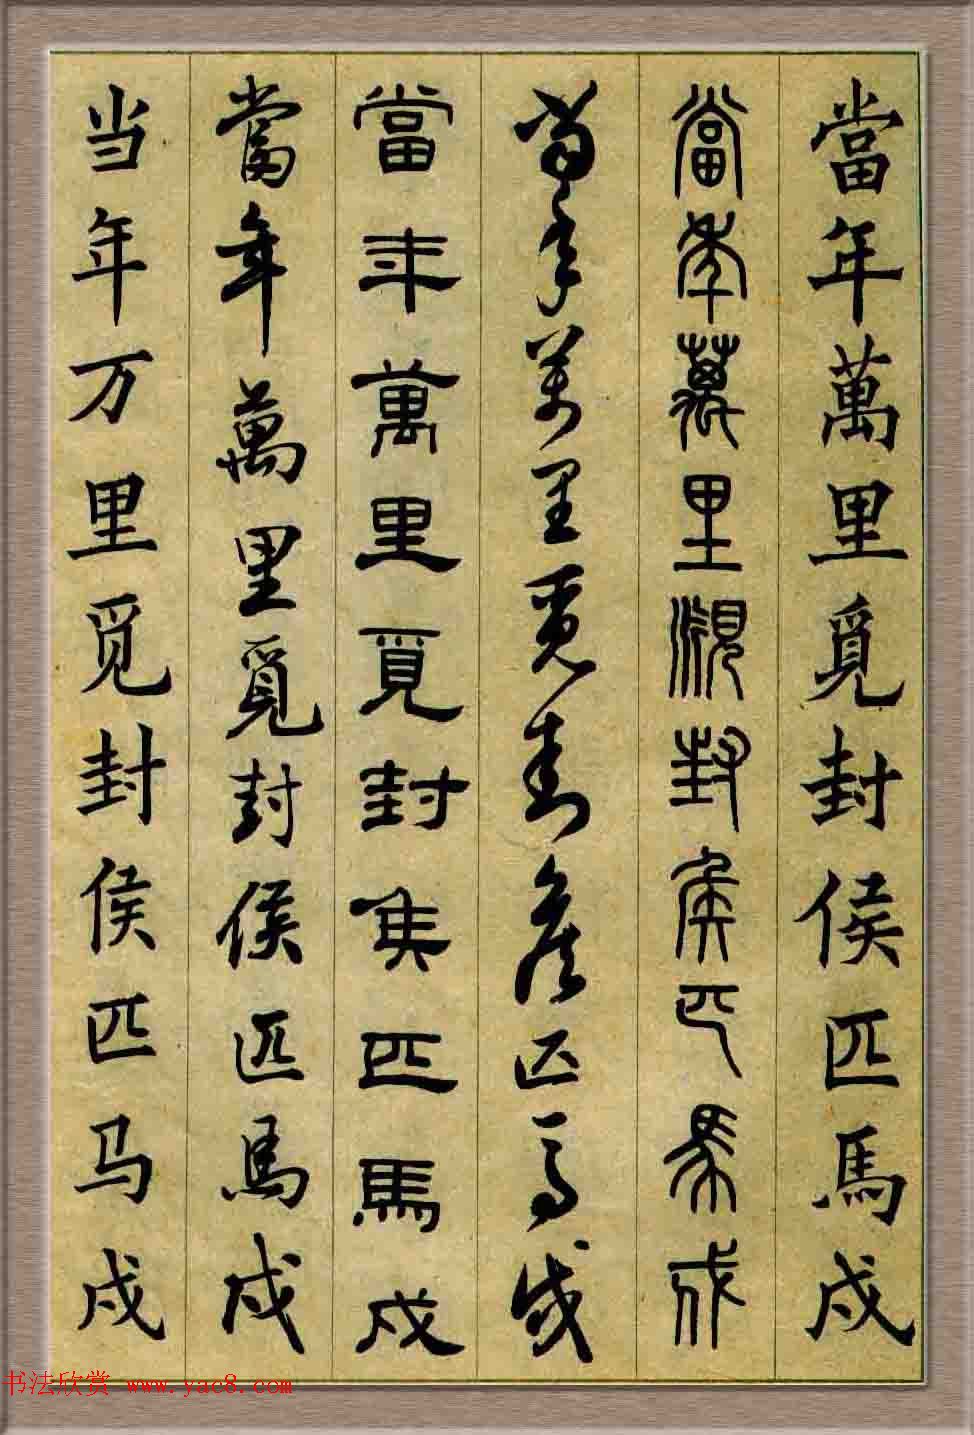 當年萬里覓封侯匹馬戍
當年萬里覓封侯匹馬戍
當年萬里覓封侯匹馬戍
當年萬里覓封侯匹馬戍
當年萬里覓封侯匹馬戍
当年万里觅封侯匹马戍
书法欣赏 www.yac8.com